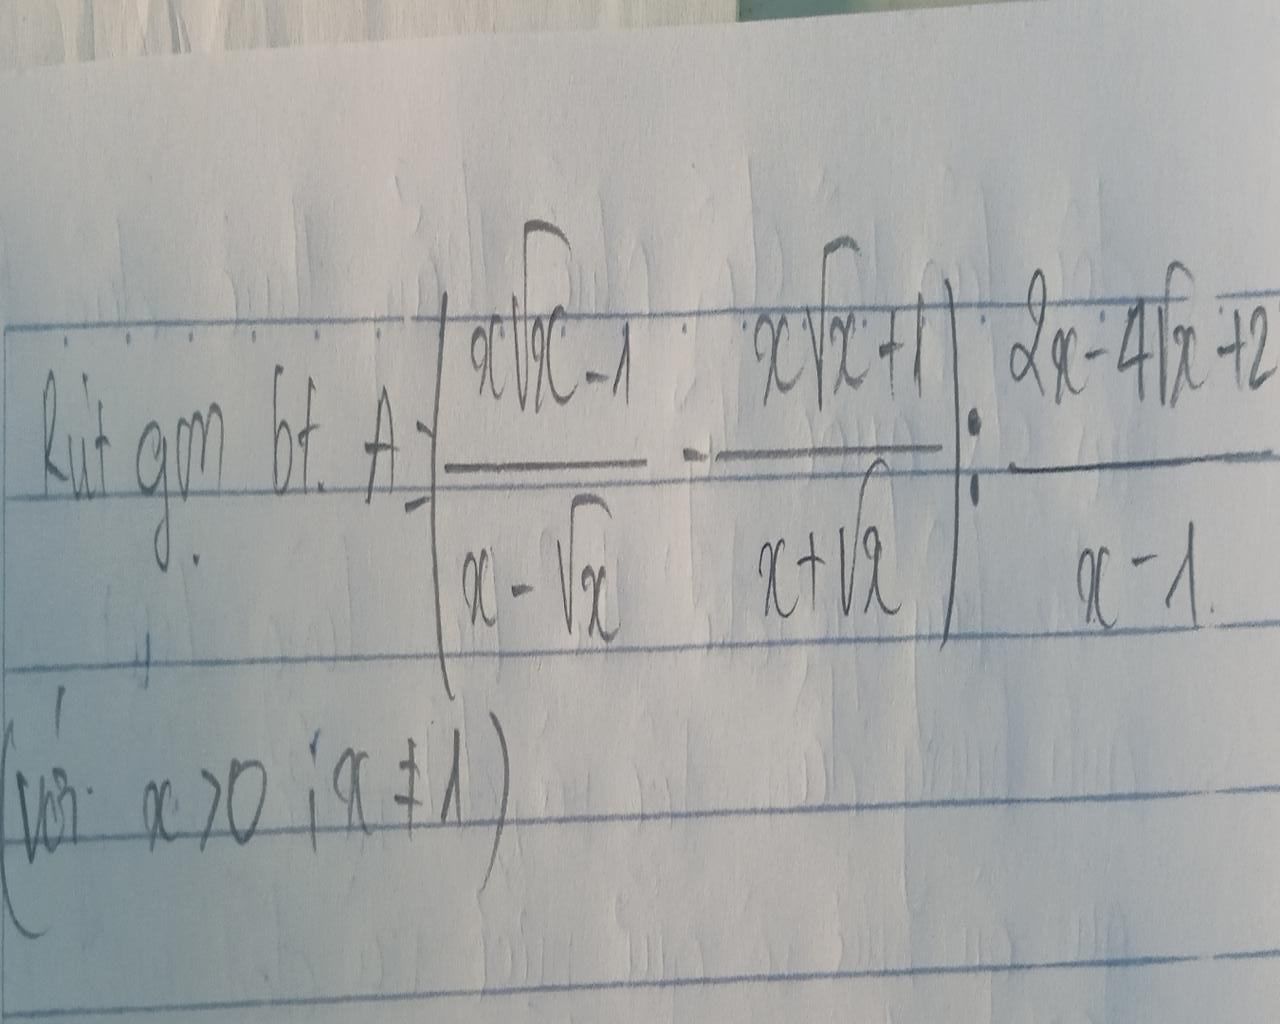 Rút gọn bt. A = (x√x - 1 / x - √x - x√x + 1 / x + √x) : 2x - 4√x + 2 / x - 1.
(với x > 0 ; x ≠ 1)